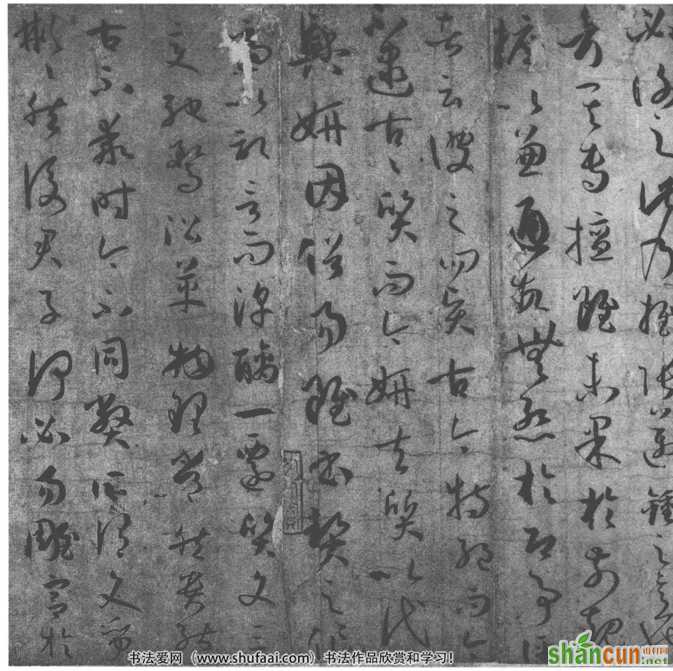 必謝之此乃推張邁鍾之意也
考其專擅雖未果於前規
摭以兼通故無慚於即事評
者云彼之四賢古今特絕而今
不逮古〻質而今妍夫質以代
興妍因俗易雖書契之作
適以記言而淳醨一遷質文三
變馳騖沿革物理常然貴能
古不乖時今不同弊所謂文質
彬〻然後君子何必易雕宮於
书法爱网（www.shufaai.com）书法作品欣赏和学习！
shancun
山村网
.net